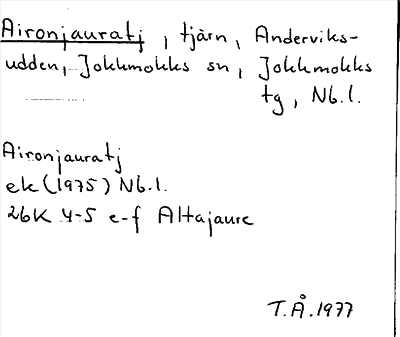 Aironjauratj, tjärn, Anderviks-
udden, Jokkmokks sn, Jokkmokks
tg, Nb.l.
Aironjauratj
ek (1975) Nb.l.
26K 4-5 e-f Altajaure
T.Å. 1977